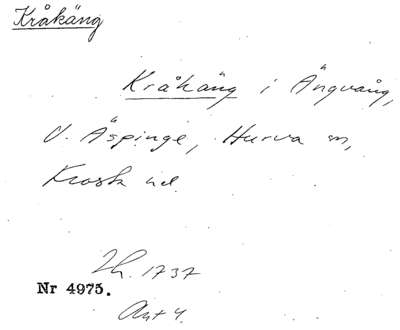 Kråkäng
Kråkäng i Ängvång,
V. Äspinge, Hurva sn,
Frosta hd.
Lh. 1737
Nr 4975.
Akt 4.